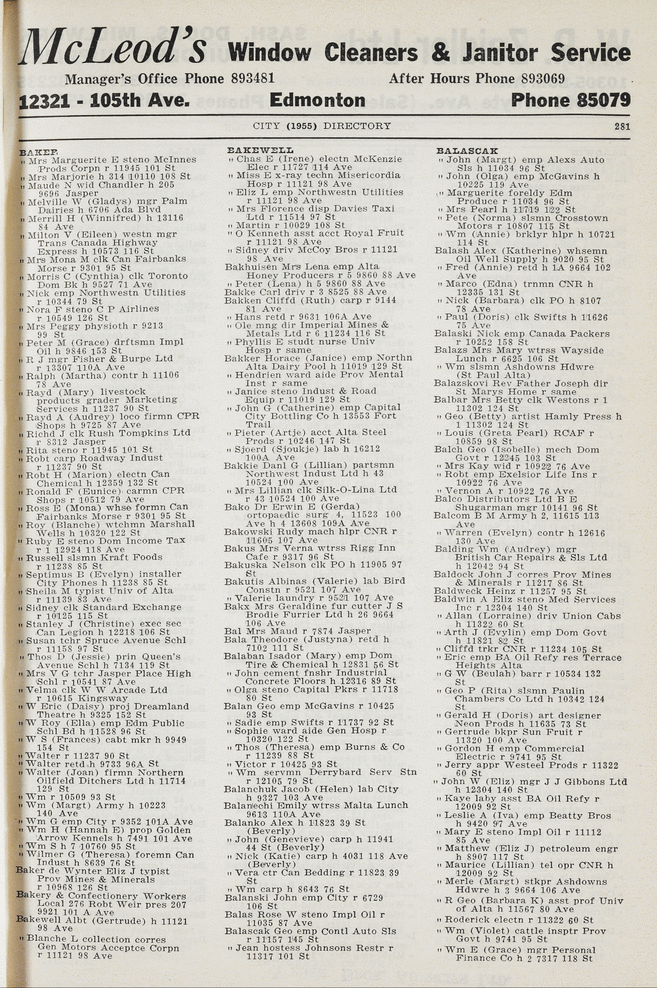 McLeod's Window Cleaners & Janitor Service
Manager's Office Phone 893481 After Hours Phone 893069
12321 - 105th Ave. Edmonton Phone 85079
CITY (1955) DIRECTORY 281
BAKER
" Mrs Marguerite E steno McInnes
Prods Corpn r 11945 101 St
" Mrs Marjorie h 314 10110 108 St
" Maude N wid Chandler h 205
9696 Jasper
" Melville W (Gladys) mgr Palm
Dairies h 6706 Ada Blvd
" Merrill H (Winnifred) h 13116
84 Ave
" Milton V (Eileen) westn mgr
Trans Canada Highway
Express h 10573 116 St
" Mrs Mona M clk Can Fairbanks
Morse r 9301 95 St
" Morris C (Cynthia) clk Toronto
Dom Bk h 9527 71 Ave
" Nick emp Northwestn Utilities
r 10344 79 St
" Nora F steno C P Airlines
r 10549 126 St
" Mrs Peggy physioth r 9213
99 St
" Peter M (Grace) drftsmn Impl
Oil h 9846 153 St
" R J mgr Fisher & Burpe Ltd
r 13307 110A Ave
" Ralph (Martha) contr h 11106
78 Ave
" Rayd (Mary) livestock
products grader Marketing
Services h 11237 90 St
" Rayd A (Audrey) loco firmn CPR
Shops h 9725 87 Ave
" Richd J clk Rush Tompkins Ltd
r 8312 Jasper
" Rita steno r 11945 101 St
" Robt carp Roadway Indust
r 11237 90 St
" Robt H (Marion) electn Can
Chemical h 12359 132 St
" Ronald F (Eunice) carmn CPR
Shops r 10512 79 Ave
" Ross E (Mona) whse formn Can
Fairbanks Morse r 9301 95 St
" Roy (Blanche) wtchmn Marshall
Wells h 10320 122 St
" Ruby E steno Dom Income Tax
r 1 12924 118 Ave
" Russell slsmn Kraft Foods
r 11238 85 St
" Septimus B (Evelyn) installer
City Phones h 11238 85 St
" Sheila M typist Univ of Alta
r 11139 83 Ave
" Sidney clk Standard Exchange
r 10125 115 St
" Stanley J (Christie) exec sec
Can Legion h 12218 106 St
" Susan tchr Spruce Avenue Schl
r 11158 97 St
" Thos D (Jessie) prin Queen's
Avenue Schl h 7134 119 St
" Mrs V G tchr Jasper Place High
Schl r 10541 87 Ave
" Velma clk W W Arcade Ltd
r 10615 Kingsway
" W Eric (Daisy) proj Dreamland
Theatre h 9325 152 St
" W Roy (Ella) emp Edm Public
Schl Bd h 11528 96 St
" W S (Frances) cabt mkr h 9949
154 St
" Walter r 11237 90 St
" Walter retd h 9733 96A St
" Walter (Joan) firmn Northern
Oilfield Ditchers Ltd h 11714
129 St
" Wm r 10509 93 St
" Wm (Margt) Army h 10223
140 Ave
" Wm G emp City r 9352 101A Ave
" Wm H (Hannah E) prop Golden
Arrow Kennels h 7491 101 Ave
" Wm S h 7 10760 95 St
" Wilmer G (Theresa) foremn Can
Indust h 8639 76 St
Baker de Wynter Eliz J typist
Prov Mines & Minerals
r 10968 126 St
Bakery & Confectionery Workers
Local 276 Robt Weir pres 207
9921 101 A Ave
Bakewell Albt (Gertrude) h 11121
98 Ave
" Blanche L collection corres
Gen Motors Acceptce Corpn
r 11121 98 Ave
BAKEWELL
" Chas E (Irene) electn McKenzie
Elec r 11727 114 Ave
" Miss E x-ray techn Misericordia
Hosp r 11121 98 Ave
" Eliz L emp Northwestn Utilities
r 11121 98 Ave
" Mrs Florence disp Davies Taxi
Ltd r 11514 97 St
" Martin r 10029 108 St
" O Kenneth asst acct Royal Fruit
r 11121 98 Ave
" Sidney driv McCoy Bros r 11121
98 Ave
Bakhuisen Mrs Lena emp Alta
Honey Producers r 5 9860 88 Ave
" Peter (Lena) h 5 9860 88 Ave
Bakke Carl driv r 3 8525 88 Ave
Bakken Cliffd (Ruth) carp r 9144
81 Ave
" Hans retd r 9631 106A Ave
" Ole mng dir Imperial Mines &
Metals Ltd r 6 11234 116 St
" Phyllis E studt nurse Univ
Hosp r same
Bakker Horace (Janice) emp Northn
Alta Dairy Pool h 11019 129 St
" Hendrien ward aide Prov Mental
Inst r same
" Janice steno Indust & Road
Equip r 11019 129 St
" John G (Catherine) emp Capital
City Bottling Co h 13553 Fort
Trail
" Pieter (Artje) acct Alta Steel
Prods r 10246 147 St
" Sjoerd (Sjoukje) lab h 16212
100A Ave
Bakkie Danl G (Lillian) partsmn
Northwest Indust Ltd h 43
10524 100 Ave
" Mrs Lillian clk Silk-O-Lina Ltd
r 43 10524 100 Ave
Bako Dr Erwin E (Gerda)
ortopaedic surg 4, 11523 100
Ave h 4 13608 109A Ave
Bakowski Rudy mach hlpr CNR r
11605 107 Ave
Bakus Mrs Verna wtrss Rigg Inn
Cafe r 9317 96 St
Bakuska Nelson clk PO h 11905 97
St
Bakutis Albinas (Valerie) lab Bird
Constn r 9521 107 Ave
" Valerie laundry r 9521 107 Ave
Bakx Mrs Geraldine fur cutter J S
Brodie Furrier Ltd h 26 9664
106 Ave
Bal Mrs Maud r 7874 Jasper
Bala Theodore (Justyna) retd h
7102 111 St
Balaban Isador (Mary) emp Dom
Tire & Chemical h 12831 56 St
" John cement fnshr Industrial
Concrete Floors h 12316 89 St
" Olga steno Capital Pkrs r 11718
80 St
Balan Geo emp McGavins r 10425
93 St
" Sadie emp Swifts r 11737 92 St
" Sophie ward aide Gen Hosp r
10320 122 St
" Thos (Theresa) emp Burns & Co
r 11239 88 St
" Victor r 10425 93 St
" Wm servmn Derrybard Serv Stn
r 12105 79 St
Balanchuk Jacob (Helen) lab City
h 9327 103 Ave
Balanechi Emily wtrss Malta Lunch
9613 110A Ave
Balanko Alex h 11823 39 St
(Beverly)
" John (Genevieve) carp h 11941
44 St (Beverly)
" Nick (Katie) carp h 4031 118 Ave
(Beverly)
" Vera ctr Can Bedding r 11823 39
St
" Wm carp h 8643 76 St
Balanski John emp City r 6729
106 St
Balas Rose W steno Impl Oil r
11035 87 Ave
Balascak Geo emp Contl Auto Sls
r 11157 145 St
" Jean hostess Johnsons Restr r
11317 101 St
BALASCAK
" John (Margt) emp Alexs Auto
Sls h 11034 96 St
" John (Olga) emp McGavins h
10225 119 Ave
" Marguerite foreldy Edm
Produce r 11034 96 St
" Mrs Pearl h 11719 122 St
" Pete (Norma) slsmn Crosstown
Motors r 10807 115 St
" Wm (Annie) brklyr hlpr h 10721
114 St
Balash Alex (Katherine) whsemn
Oil Well Supply h 9020 95 St
" Fred (Annie) retd h 1A 9664 102
Ave
" Marco (Edna) trnmn CNR h
12335 131 St
" Nick (Barbara) clk PO h 8107
78 Ave
" Paul (Doris) clk Swifts h 11626
75 Ave
Balaski Nick emp Canada Packers
r 10252 158 St
Balazs Mrs Mary wtrss Wayside
Lunch r 6625 106 St
" Wm slsmn Ashdowns Hdwre
(St Paul Alta)
Balazskovi Rev Father Joseph dir
St Marys Home r same
Balbar Mrs Betty clk Westons r 1
11302 124 St
" Geo (Betty) artist Hamly Press h
1 11302 124 St
" Louis (Greta Pearl) RCAF r
10859 98 St
Balch Geo (Isobelle) mech Dom
Govt r 12245 103 St
" Mrs Kay wid r 10922 76 Ave
" Robt emp Exelsior Life Ins r
10922 76 Ave
" Vernon A r 10922 76 Ave
Balco Distributors Ltd B E
Shugarman mgr 10141 96 St
Balcom B M Army h 2, 11615 113
Ave
" Warren (Evelyn) contr h 12616
130 Ave
Balding Wm (Audrey) mgr
British Car Repairs & Sls Ltd
h 12042 94 St
Baldock John J corres Prov Mines
& Minerals r 11217 86 St
Baldweck Heinz r 11257 95 St
Baldwin A Eliz steno Med Services
Inc r 12304 140 St
" Allan (Lorraine) driv Union Cabs
h 11322 60 St
" Arth J (Evylin) emp Dom Govt
h 11821 82 St
" Cliffd trkr CNR r 11234 105 St
" Eric emp BA Oil Refy res Terrace
Heights Alta
" G W (Beulah) barr r 10534 132
St
" Geo P (Rita) slsmn Paulin
Chambers Co Ltd h 10342 124
St
" Gerald H (Doris) art designer
Neon Prods h 11635 73 St
" Gertrude bkpr Sun Fruit r
11320 100 Ave
" Gordon H emp Commercial
Electric r 9741 95 St
" Jerry appr Westeel Prods r 11322
60 St
" John W (Eliz) mgr J J Gibbons Ltd
h 12304 140 St
" Kaye laby asst BA Oil Refy r
12009 92 St
" Leslie A (Iva) emp Beatty Bros
h 9420 97 Ave
" Mary E steno Impl Oil r 11112
85 Ave
" Matthew (Eliz J) petroleum engr
h 8907 117 St
" Maurice (Lillian) tel opr CNR h
12009 92 St
" Merle (Margt) stkpr Ashdowns
Hdwre h 3 9664 106 Ave
" R Geo (Barbara K) asst prof Univ
of Alta h 11567 80 Ave
" Roderick electn r 11322 60 St
" Wm (Violet) cattle insptr Prov
Govt h 9741 95 St
" Wm E (Grace) mgr Personal
Finance Co h 2 7317 118 St